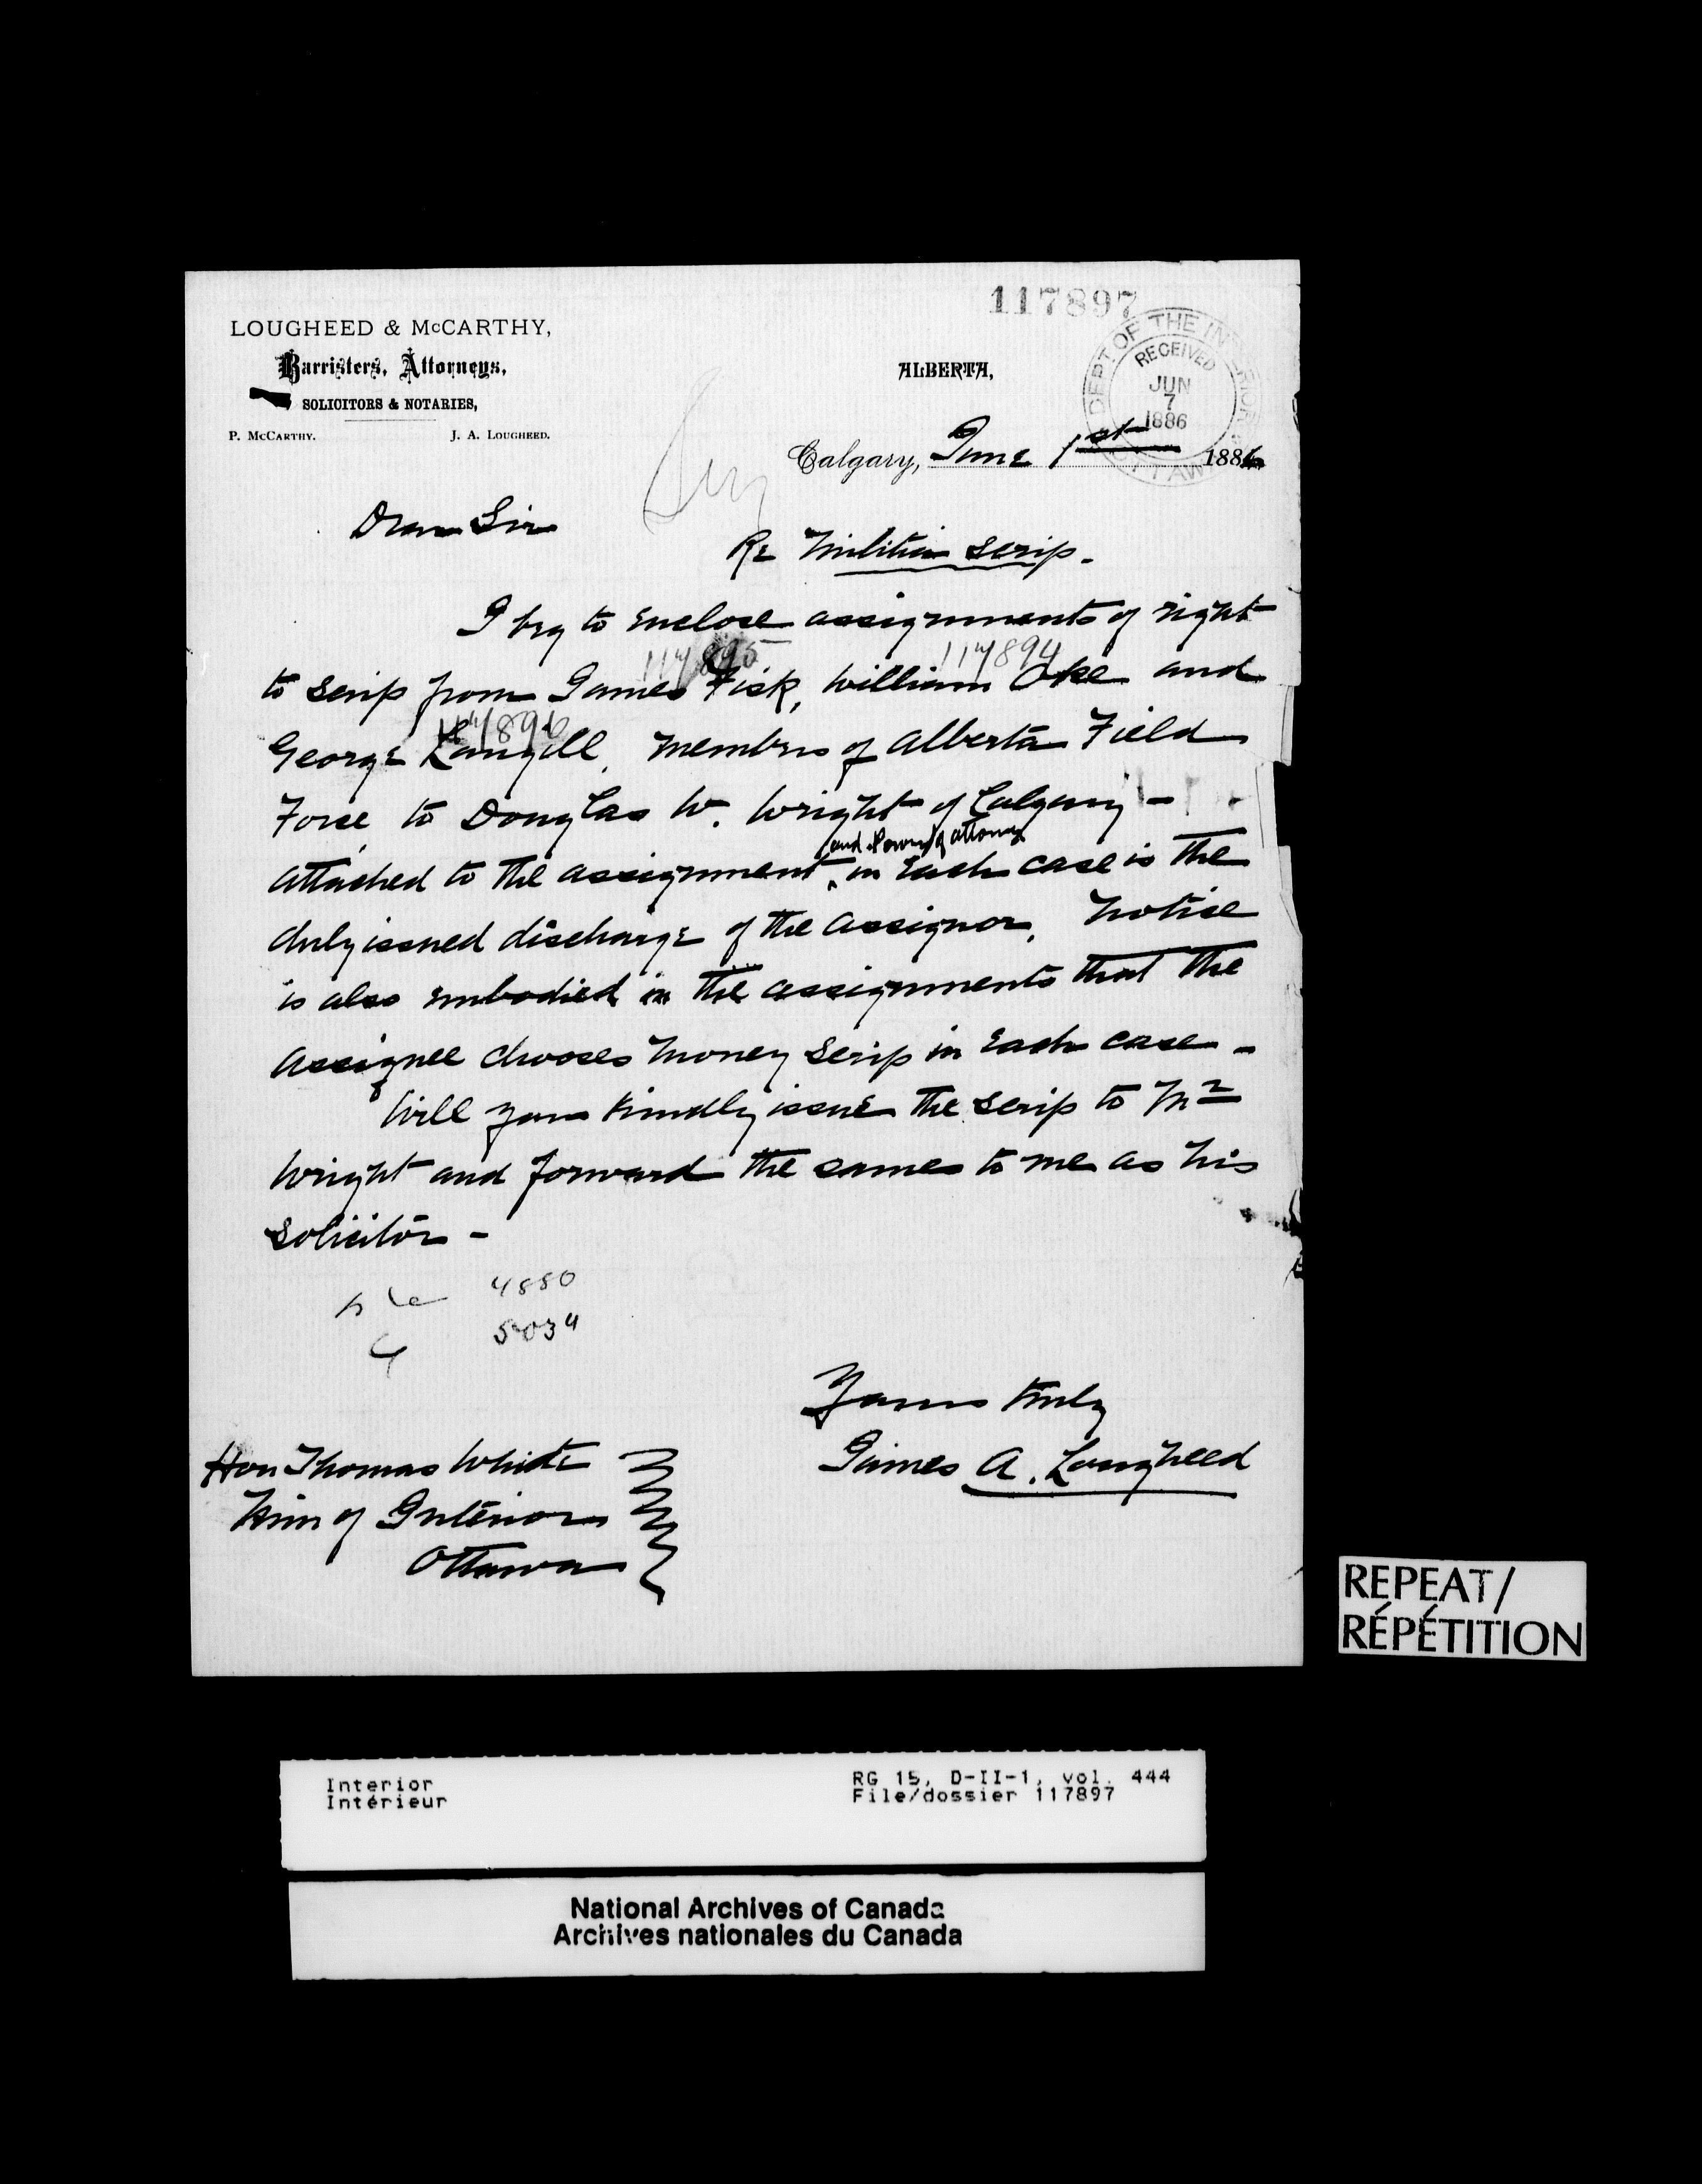 117897
LOUGHEED & McCARTHY,
Barristers, Attorneys,
SOLICITORS & NOTARIES,
P. McCARTHY. J. A. LOUGHEED.
ALBERTA,
DEPT OF THE INTERIOR
RECEIVED
JUN
7
1886
OTTAWA
Calgary, June 1st 1886
Dear Sir
Re Militia Scrip.
I beg to enclose assignments of right
117895 117894
to scrip from James Fisk, William Oke and
117896
George Langill, members of Alberta Field
Force to Douglas W. Wright of Calgary -
and Power of attorney
attached to the assignment in Each case is the
duly issued discharge of the assignor. Notice
is also embodied in the assignments that the
assignee chooses money scrip in Each case -
Will you kindly issue the scrip to Mr
Wright and forward the same to me as his
Solicitor -
4880
5034
Yours truly
James A. Lougheed
Hon Thomas White
Min of Interior
Ottawa
REPEAT/
RÉPÉTITION
Interior RG 15, D-II-1, vol. 444
Intérieur File/dossier 117897
National Archives of Canada
Archives nationales du Canada